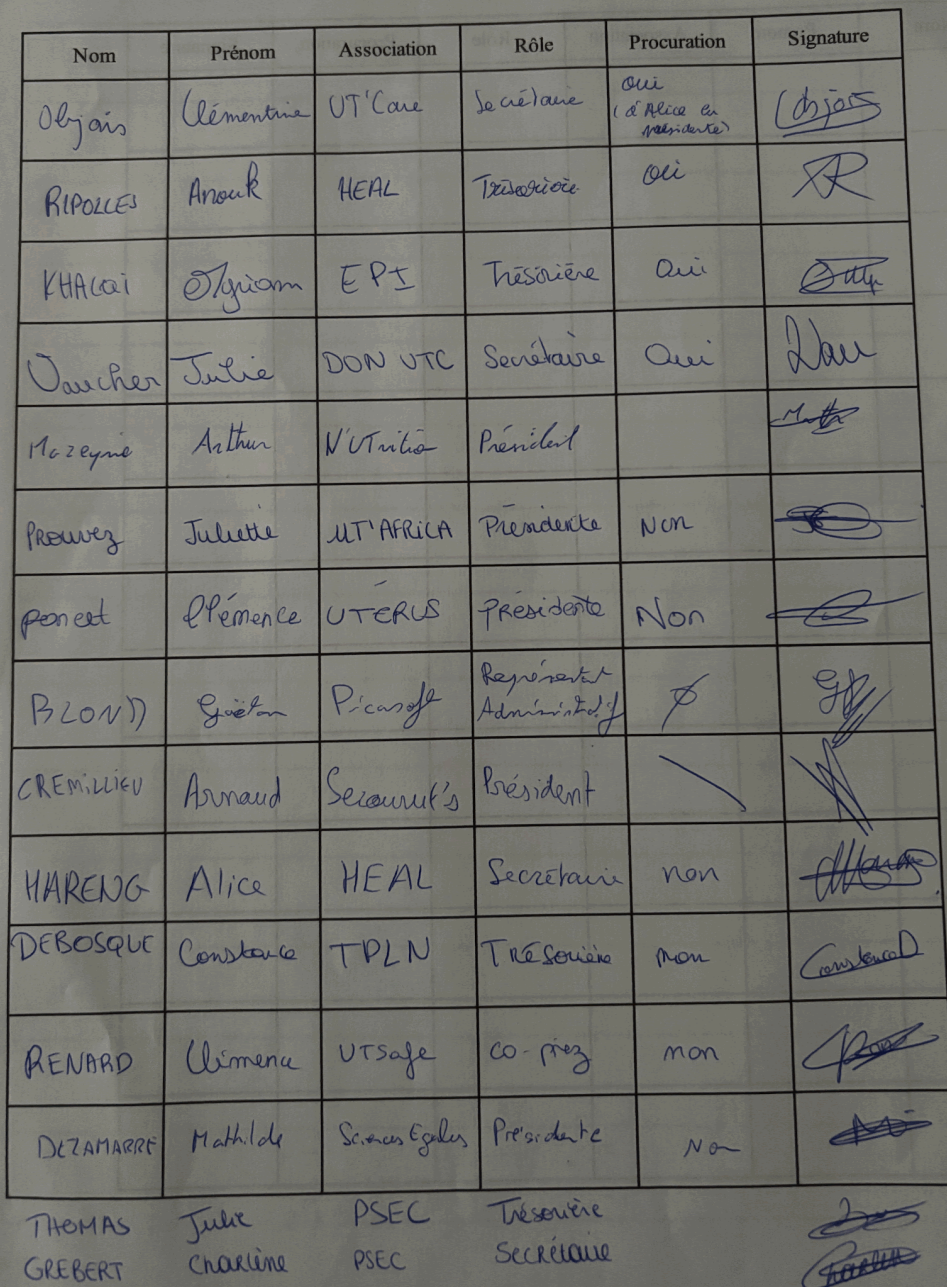 Nom Prénom Association Rôle Procuration Signature
Objois Clémentine UT'Care Secrétaire Oui (d'Alice en présidente) Objois
RIPOLLES Anouk HEAL Trésorière Oui
KHALQI EPI Trésorière Oui
Vaucher Julie DON UTC Secrétaire Oui Vau
Mazeyrie Arthur N'UTrition Président
PROUVEZ Juliette UT'AFRICA Présidente Non
Poncet Clémence UTÉRUS Présidente Non
BLOND Gaëtan Picasoft Représentant Administratif
CREMILLIEU Arnaud Secourut's Président
HARENG Alice HEAL Secrétaire non
DEBOSQUE Constance TPLN Trésorière non Constance D
RENARD Clémence UTSafe Co-prez non
DEZAMARRE Mathilde Sciences Egales Présidente Non
THOMAS Julie PSEC Trésorière
GREBERT Charlène PSEC Secrétaire